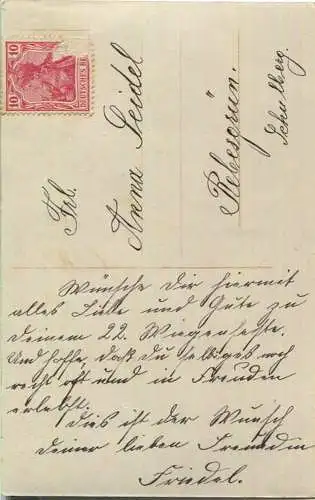 10
10
DEUTSCHES REICH
Frl.
Anna Seidel
Rebesgrün.
Schulberg.
Wünsche Dir hiermit
alles Liebe und Gute zu
deinem 22. Wiegenfeste.
Und hoffe, daß du selbiges noch
recht oft und in Freuden
erlebst.
dies ist der Wunsch
deiner lieben Freundin
Friedel.